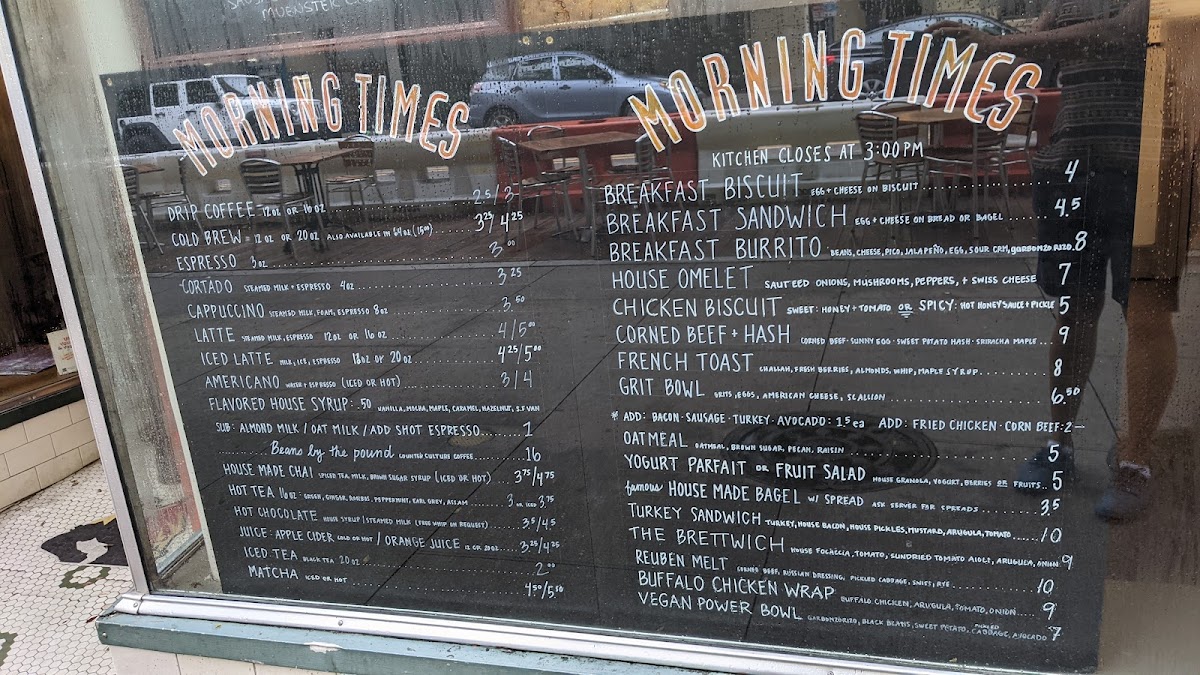 MUENSTER
MORNING TIMES
DRIP COFFEE 12 OZ OR 16 OZ 2.5/3
COLD BREW 12 OZ OR 20 OZ ALSO AVAILABLE IN 64 OZ (15.00) 3.25/4.25
ESPRESSO 3 OZ 3.00
CORTADO STEAMED MILK + ESPRESSO 4 OZ 3.25
CAPPUCCINO STEAMED MILK, FOAM, ESPRESSO 8 OZ 3.50
LATTE STEAMED MILK, ESPRESSO 12 OZ OR 16 OZ 4/5.00
ICED LATTE MILK, ICE, ESPRESSO OR 20 OZ 4.25/5.00
AMERICANO WATER + ESPRESSO (ICED OR HOT) 3/4
FLAVORED HOUSE SYRUP: .50 VANILLA, MOCHA, MAPLE, CARAMEL, HAZELNUT, S.F. VAN
SUB: ALMOND MILK / OAT MILK / ADD SHOT ESPRESSO 1
Beans by the pound COUNTER CULTURE COFFEE 16
HOUSE MADE CHAI SPICED TEA, MILK, BROWN SUGAR SYRUP (ICED OR HOT) 3.75/4.75
HOT TEA 16 OZ: GREEN, GINGER, ROOIBOS, PEPPERMINT, EARL GREY, ASSAM 3 OR ICED 3.75
HOT CHOCOLATE HOUSE SYRUP | STEAMED MILK (FREE WHIP ON REQUEST) 3.5/4.5
JUICE: APPLE CIDER COLD OR HOT / ORANGE JUICE 12 OZ 20 OZ 3.25/4.25
ICED TEA BLACK TEA 20 OZ 2.00
MATCHA ICED OR HOT 4.50/5.50
MORNING TIMES
KITCHEN CLOSES AT 3:00 PM
BREAKFAST BISCUIT EGG + CHEESE ON BISCUIT 4
BREAKFAST SANDWICH EGG + CHEESE ON BREAD OR BAGEL 4.5
BREAKFAST BURRITO BEANS, CHEESE, PICO, JALAPEÑO, EGG, SOUR CRM, GARBONZORIZO 8
HOUSE OMELET SAUTEED ONIONS, MUSHROOMS, PEPPERS, + SWISS CHEESE 7
CHICKEN BISCUIT SWEET: HONEY + TOMATO OR SPICY: HOT HONEY SAUCE + PICKLE 5
CORNED BEEF + HASH CORNED BEEF · SUNNY EGG · SWEET POTATO HASH · SRIRACHA MAPLE 9
FRENCH TOAST CHALLAH, FRESH BERRIES, ALMONDS, WHIP, MAPLE SYRUP 8
GRIT BOWL GRITS, EGGS, AMERICAN CHEESE, SCALLION 6.50
* ADD: BACON · SAUSAGE · TURKEY · AVOCADO: 1.5 ea ADD: FRIED CHICKEN · CORN BEEF: 2
OATMEAL OATMEAL, BROWN SUGAR, PECAN, RAISIN 5
YOGURT PARFAIT OR FRUIT SALAD HOUSE GRANOLA, YOGURT, BERRIES OR FRUITS 5
famous HOUSE MADE BAGEL W/ SPREAD ASK SERVER FOR SPREADS 3.5
TURKEY SANDWICH TURKEY, HOUSE BACON, HOUSE PICKLES, MUSTARD, ARUGULA, TOMATO 10
THE BRETTWICH HOUSE FOCACCIA, TOMATO, SUNDRIED TOMATO AIOLI, ARUGULA, ONION 9
REUBEN MELT CORNED BEEF, RUSSIAN DRESSING, PICKLED CABBAGE, SWISS, RYE 10
BUFFALO CHICKEN WRAP BUFFALO CHICKEN, ARUGULA, TOMATO, ONION 9
VEGAN POWER BOWL GARBONZORIZO, BLACK BEANS, SWEET POTATO, PICKLED CABBAGE, AVOCADO 7